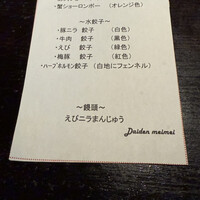 ・蟹ショーロンポー （オレンジ色）
～水餃子～
・豚ニラ 餃子 （白色）
・牛肉 餃子 （黒色）
・えび 餃子 （緑色）
・梅豚 餃子 （紅色）
・ハーブホルモン餃子（白地にフェンネル）
～饅頭～
えびニラまんじゅう
Daiden meimei